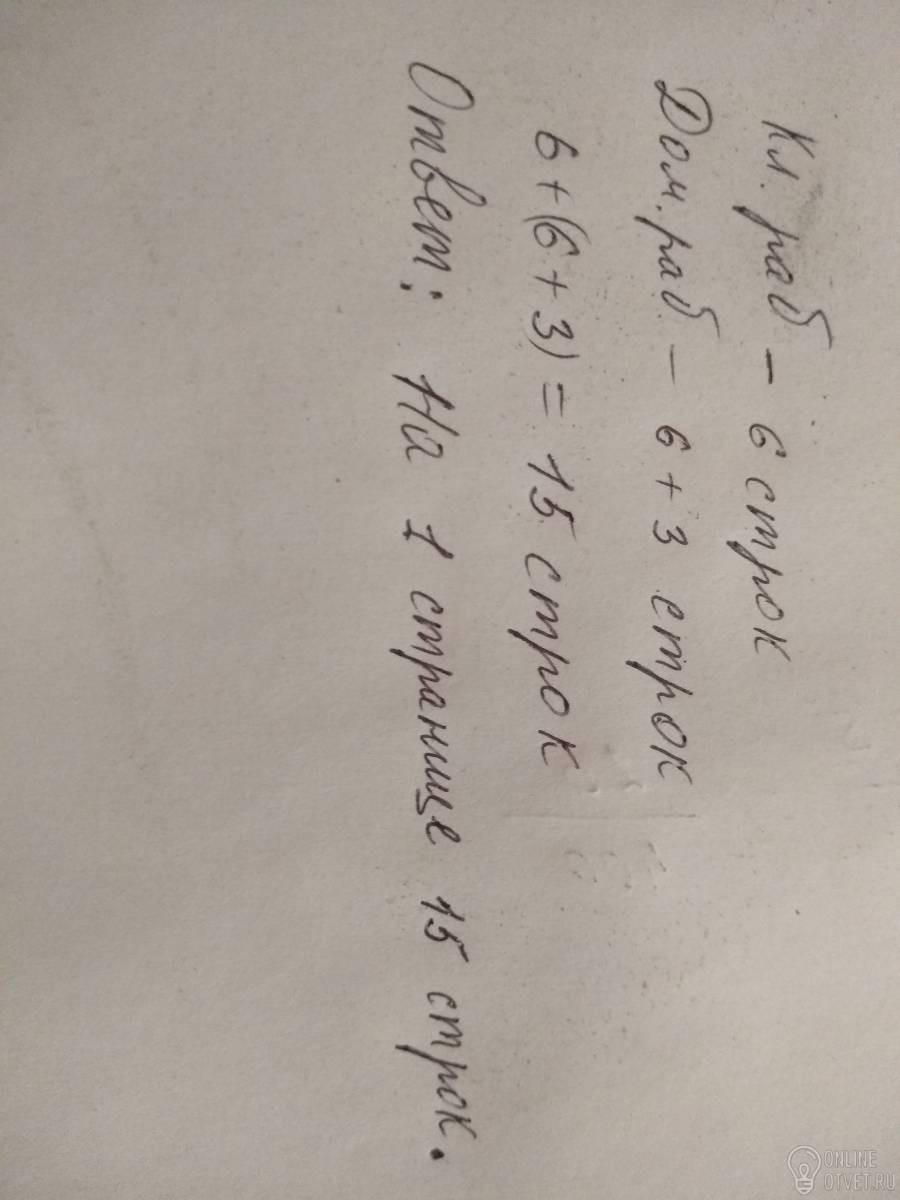 Кл. раб – 6 строк
Дом. раб – 6 + 3 строк
6 + (6 + 3) = 15 строк
Ответ: На 1 странице 15 строк.
ONLINE
OTVET.RU